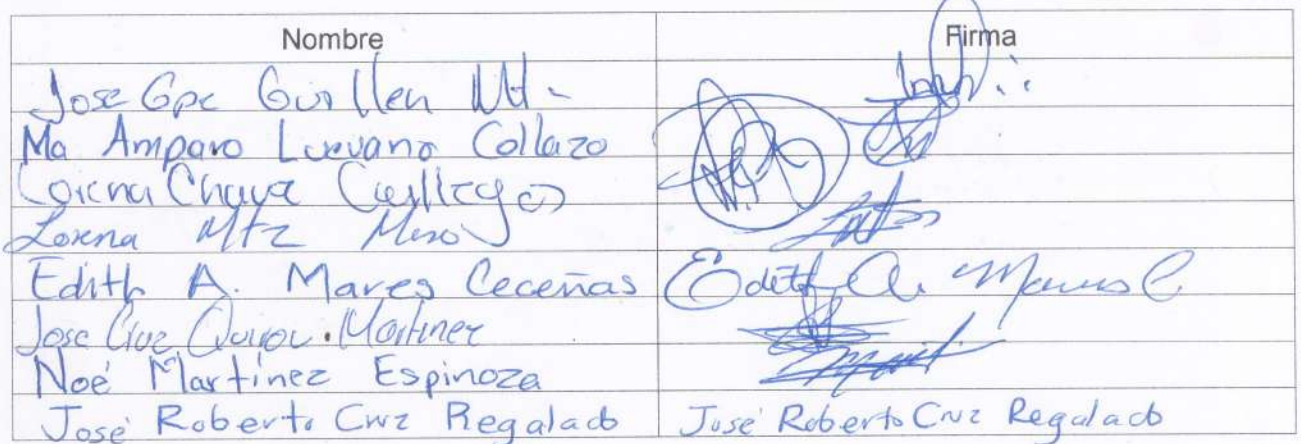 Nombre Firma
Jose Gpe Guillen Mt-
Ma Amparo Luevano Collazo
Lorena Chava Gallegos
Lorena Mtz Meso
Edith A. Mares Ceceñas Edith A. Mares C
Jose Cruz Martinez
Noé Martínez Espinoza
José Roberto Cruz Regalado José Roberto Cruz Regalado